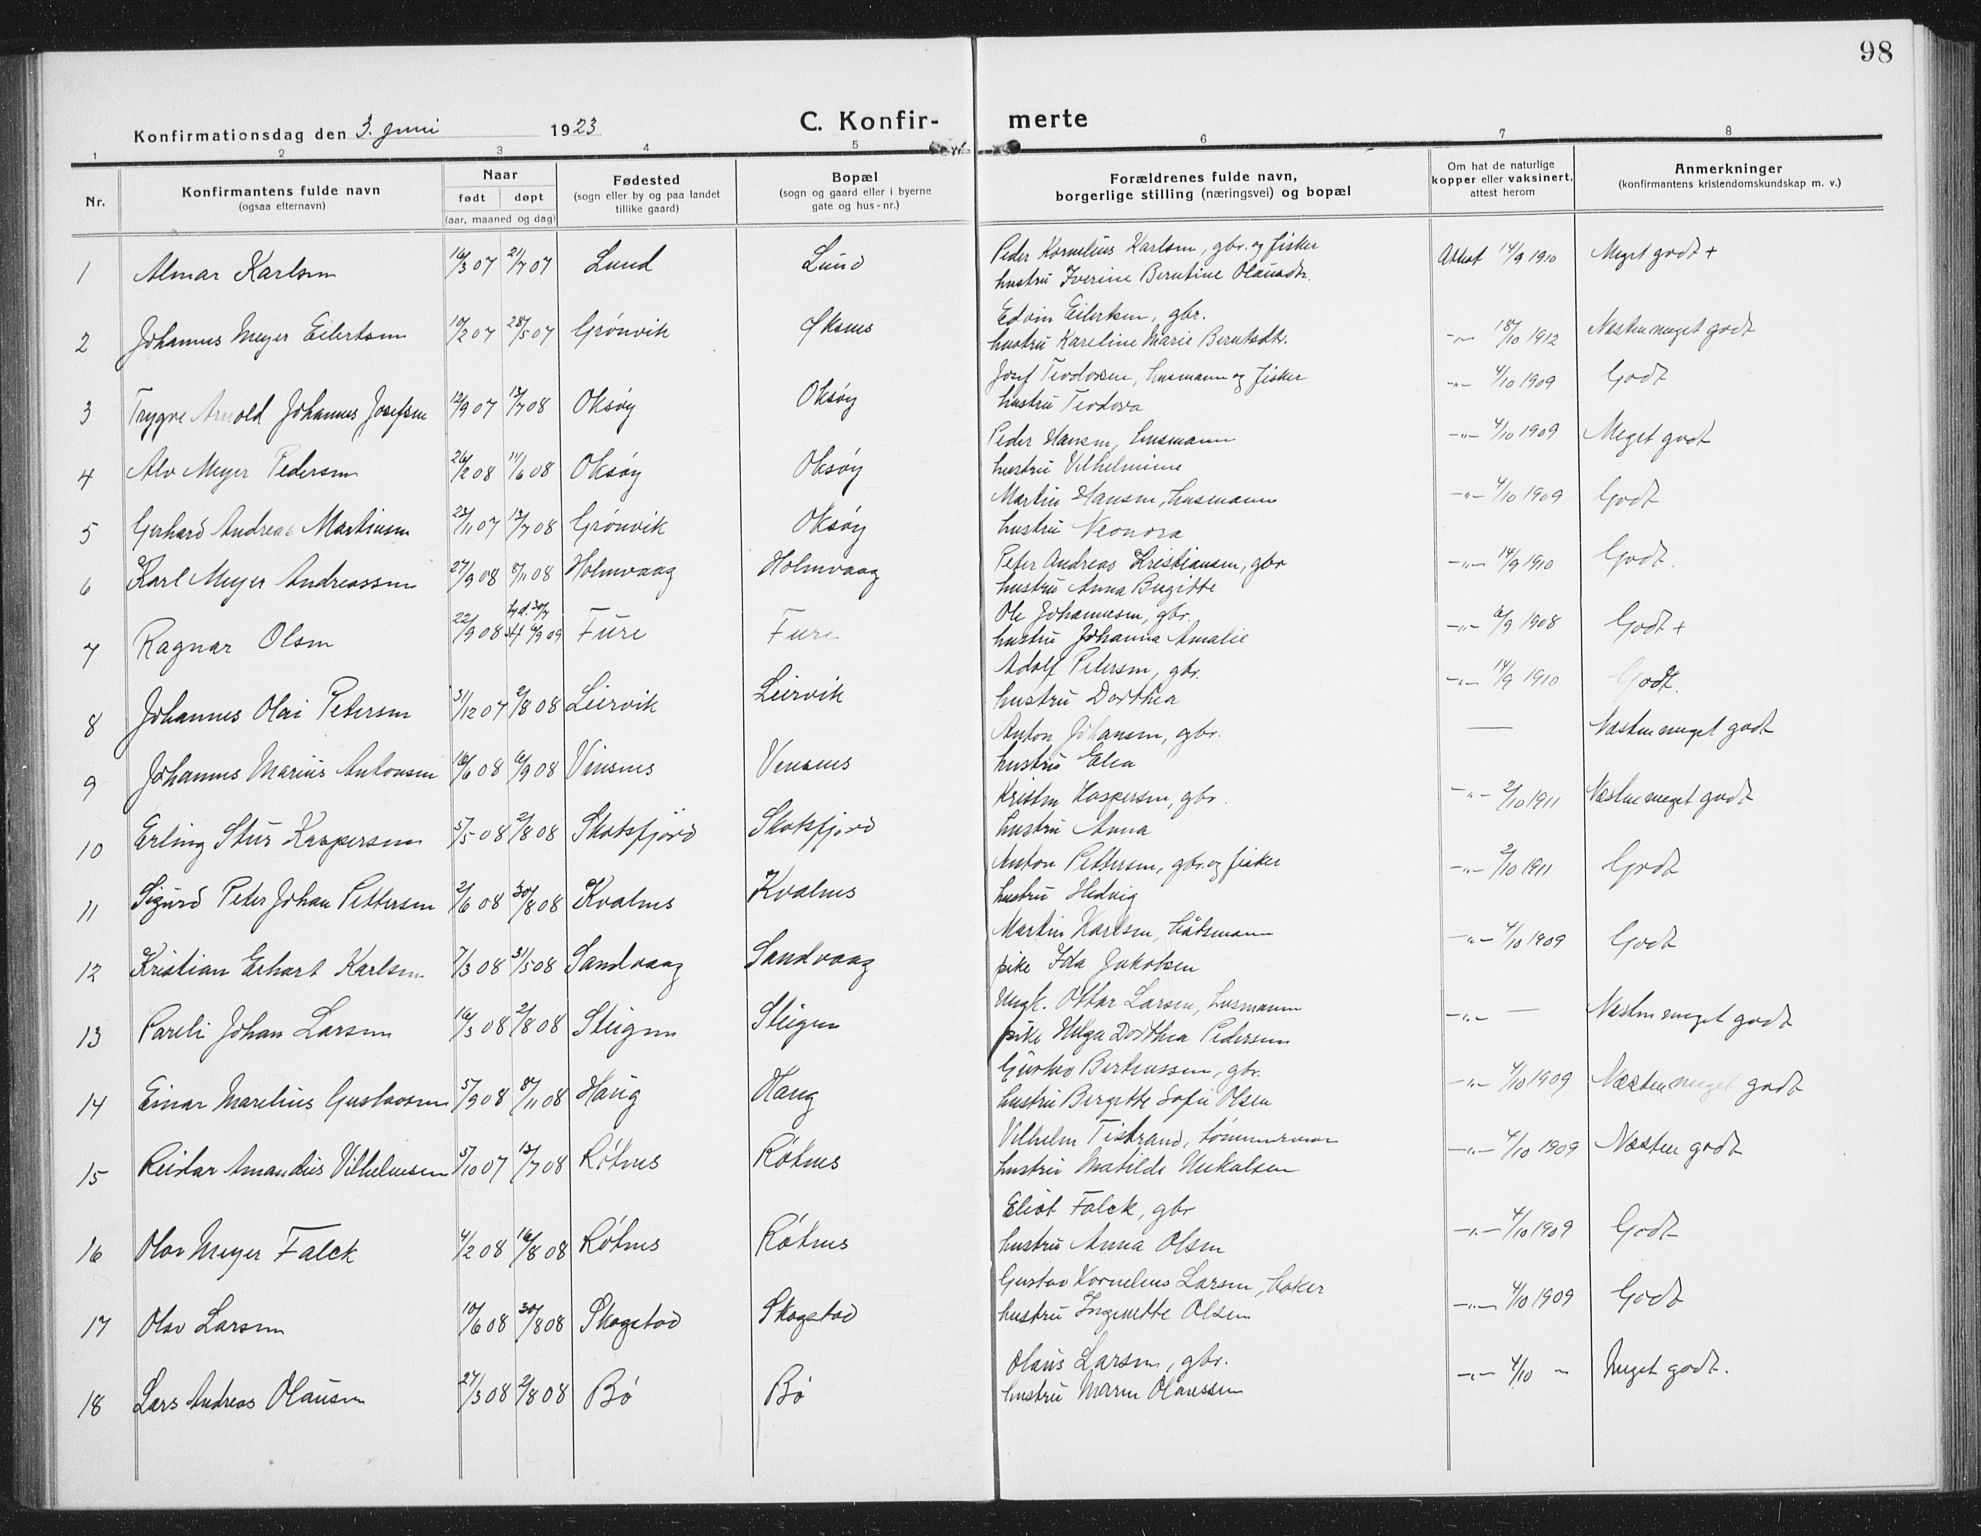 98
Konfirmationsdag den 3. Juni 1923 C. Konfirmerte
1 2 3 4 5 6 7 8
Nr. Konfirmantens fulde navn (ogsaa efternavn) Naar født døpt (aar, maaned og dag) Fødested (sogn eller by og paa landet tillike gaard) Bopæl (sogn og gaard eller i byerne gate og hus-nr.) Forældrenes fulde navn, borgerlige stilling (næringsvei) og bopæl Om hat de naturlige kopper eller vaksinert, attest herom Anmerkninger (konfirmantens kristendomskundskap m. v.)
1 Almar Karlsen 16/3 07 21/7 07 Lund Lund Peder Kornelius Karlsen, gbr. og fisker Attest 14/9 1910 Meget godt +
hustru Iverine Berntine Olausdtr.
2 Johannes Meyer Eilertsen 10/2 07 28/5 07 Grönvik Oksnes Edvin Eilertsen, gbr. -"- 18/10 1912 Næsten meget godt
hustru Kareline Marie Berntsdtr.
3 Trygve Arnold Johannes Josefsen 12/9 07 12/7 08 Oksöy Oksöy Josef Teodorsen, husmann og fisker -"- 4/10 1909 Godt
hustru Teodora
4 Alv Meyer Pedersen 26/2 08 11/6 08 Oksöy Oksöy Peder Hansen, husmann -"- 4/10 1909 Meget godt
hustru Vilhelmine
5 Gerhard Andreas Martinsen 23/11 07 12/7 08 Grönvik Oksöy Martin Hansen, husmann -"- 4/10 1909 Godt
hustru Neonora
6 Karl Meyer Andreassen 27/9 08 8/11 08 Holmvaag Holmvaag Peter Andreas Kristiansen, gbr -"- 14/9 1910 Godt.
hustru Anna Birgitte
7 Ragnar Olsen 22/9 08 Fure Fure Ole Johannesen, gbr. -"- 6/9 1908 Godt +
hustru Johanna Amalie
8 Johannes Olai Petersen 31/12 07 2/8 08 Leirvik Leirvik Adolf Petersen, gbr. -"- 14/9 1910 Godt.
hustru Dorthea
9 Johannes Marius Antonsen 16/6 08 6/9 08 Vinsnes Vinsnes Anton Johansen, gbr. — Næsten meget godt
hustru Elea
10 Erling Stur Kaspersen 5/5 08 2/8 08 Skotsfjord Skotsfjord Kristen Kaspersen, gbr. -"- 2/10 1911 Næsten meget godt
hustru Anna
11 Sigurd Peter Johan Pettersen 2/6 08 30/8 08 Kvalnes Kvalnes Anton Pettersen, gbr. og fisker -"- 2/10 1911 Godt
hustru Hedvig
12 Kristian Erhart Karlsen 7/3 08 31/5 08 Sandvaag Sandvaag Martin Karlsen, baatsmann -"- 4/10 1909 Godt
pike Ida Jakobsen
13 Pareli Johan Larsen 16/3 08 2/8 08 Steigen Steigen Ungk. Ottar Larsen, husmann -"- — Næsten meget godt
pike Helga Dorthea Pedersen
14 Einar Marelius Gustavsen 5/9 08 8/11 08 Haug Haug Gustav Berteussen, gbr. -"- 4/10 1909 Næsten meget godt
hustru Bergitte Sofie Olsen
15 Reidar Amandus Vilhelmsen 5/10 07 12/7 08 Rötnes Rötnes Vilhelm Tistrand, tömmermann -"- 4/10 1909 Næsten godt
hustru Matilde
16 Olav Meyer Falck 4/2 08 16/8 08 Rötnes Rötnes Eliot Falck, gbr -"- 4/10 1909 Godt
hustru Anna Olsen
17 Olav Larsen 10/6 08 30/8 08 Skogstad Skogstad Gustav Kornelius Larsen, baker -"- 4/10 1909 Godt
hustru Ingenette Olsen
18 Lars Andreas Olausen 27/3 08 2/8 08 Bö Bö Olaus Larsen, gbr. -"- 4/10 - Meget godt.
hustru Maren Olaussen